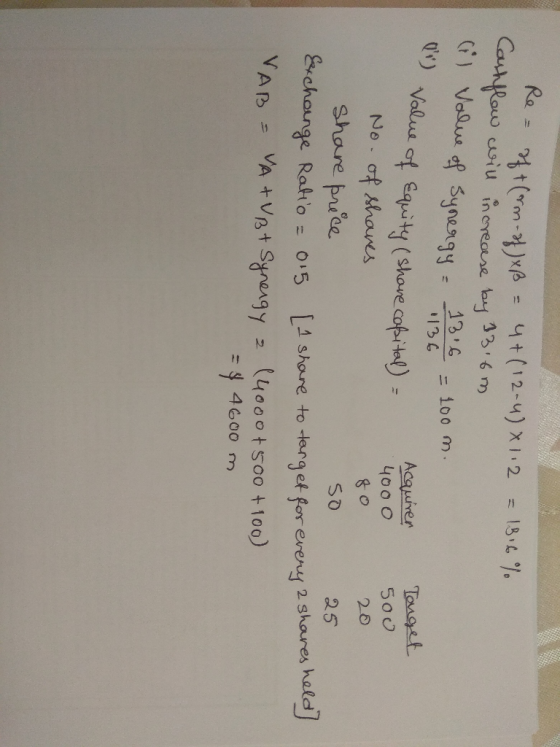 Re = rf + (rm - rf) x B = 4 + (12 - 4) x 1.2 = 13.6 %
Cashflow will increase by 13.6 m
(i) Value of Synergy = 13.6 / .136 = 100 m.
(ii) Acquirer Target
Value of Equity (share capital) = 4000 500
No. of shares 80 20
Share price 50 25
Exchange Ratio = 0.5 [1 share to target for every 2 shares held]
VAB = VA + VB + Synergy = (4000 + 500 + 100)
= $ 4600 m